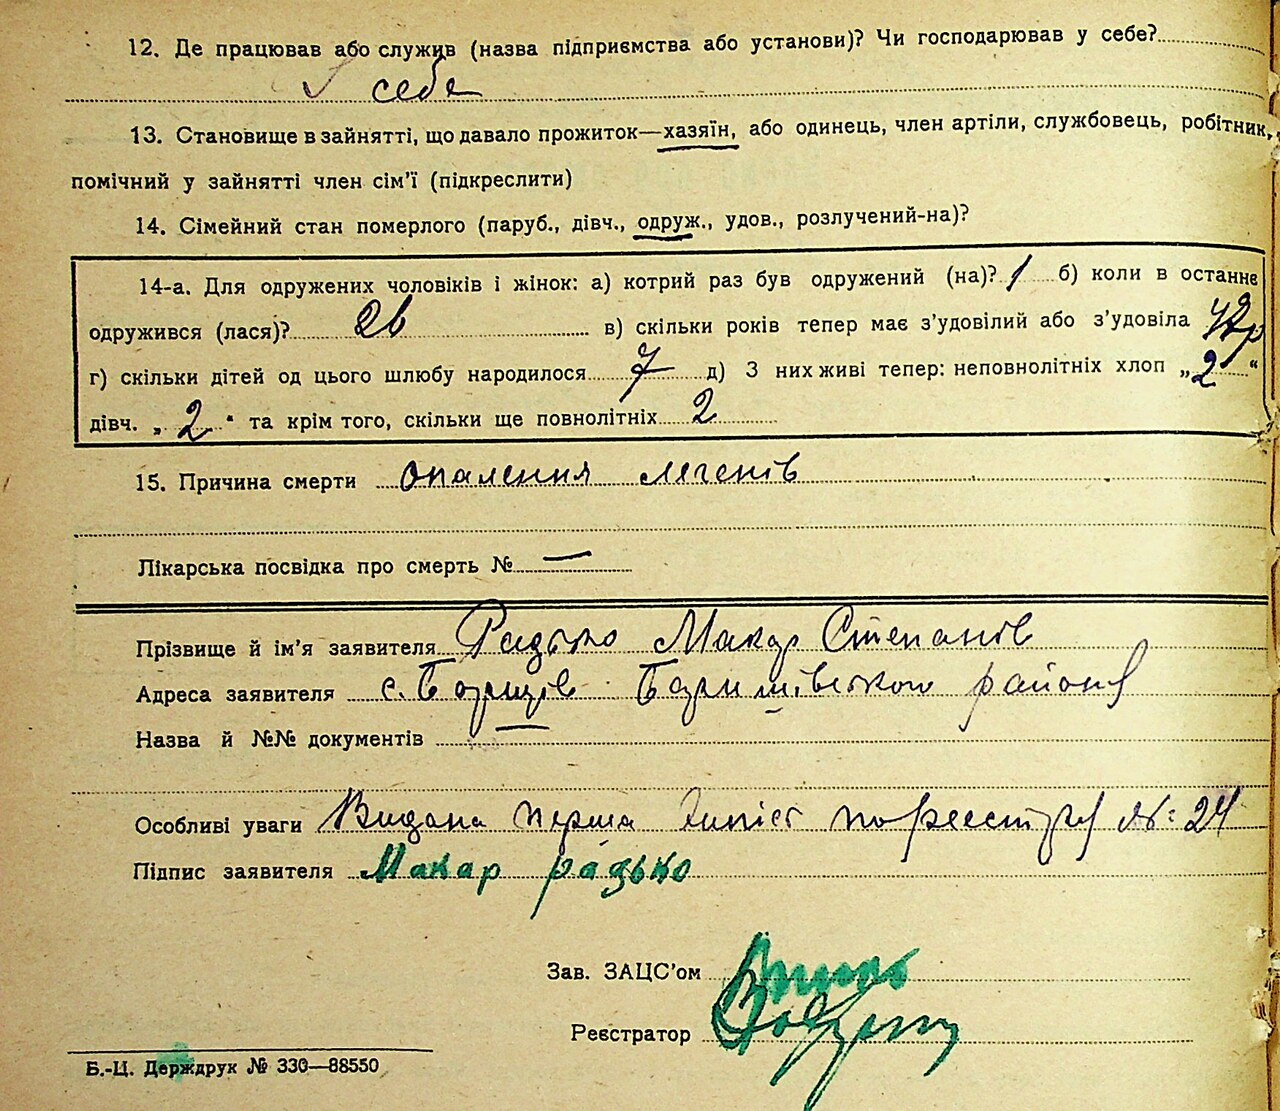 12. Де працював або служив (назва підприємства або установи)? Чи господарював у себе?
У себе
13. Становище в зайнятті, що давало прожиток—хазяїн, або одинець, член артіли, службовець, робітник,
помічний у зайнятті член сім'ї (підкреслити)
14. Сімейний стан померлого (паруб., дівч., одруж., удов., розлучений-на)?
14-а. Для одружених чоловіків і жінок: а) котрий раз був одружений (на)? 1 б) коли в останнє
одружився (лася)? 26 в) скільки років тепер має з'удовілий або з'удовіла 42р
г) скільки дітей од цього шлюбу народилося 7 д) З них живі тепер: неповнолітніх хлоп „2“
дівч. „2“ та крім того, скільки ще повнолітніх 2
15. Причина смерти Опалення лягенів
Лікарська посвідка про смерть № —
Прізвище й ім'я заявителя Радько Макар Степанов
Адреса заявителя с. Баришівського района
Назва й №№ документів
Особливі уваги Видана перша по реєстру № 24
Підпис заявителя Макар радько
Зав. ЗАЦС'ом
Реєстратор
Б.-Ц. Держдрук № 330—88550